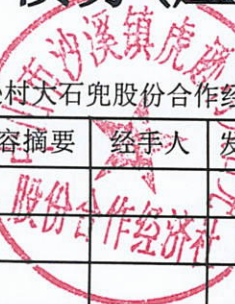 村大石兜股份合作经
容摘要 经手人 发
市沙溪镇虎
股份合作经济社